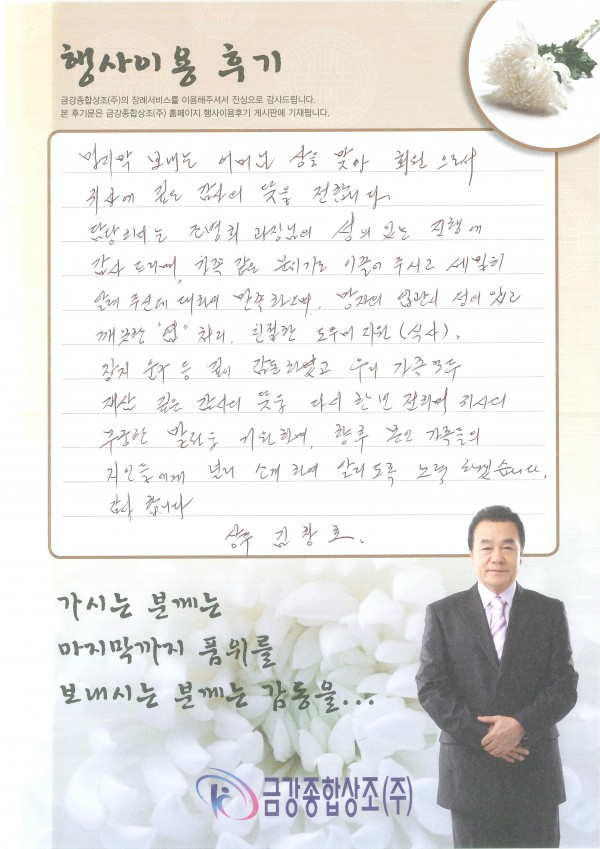 행사이용 후기
금강종합상조(주)의 장례서비스를 이용해주셔서 진심으로 감사드립니다.
본 후기문은 금강종합상조(주) 홈페이지 행사이용후기 게시판에 기재됩니다.
마지막 보내는 어머님 상을 맞아 회원 으로서
귀사에 깊은 감사의 뜻을 전합니다.
담당하시는 조병희 과장님의 성의 있는 진행에
감사 드리며, 가족 같은 분위기로 이끌어 주시고 세밀히
알려 주신데 대하여 만족하으며, 망자의 입관시 성의 있고
깨끗한 "염" 처리, 친절한 도우미 지원 (식사),
장지 운구 등 깊이 감동하였고 우리 가족 모두
재삼 깊은 감사의 뜻을 다시 한번 전하며 귀사의
무궁한 발전을 기원하며, 향후 본인 가족들의
지인들에게 널리 소개 하여 알리도록 노력 하겠습니다.
감사 합니다
상주 김창호.
가시는 분께는
마지막까지 품위를
보내시는 분께는 감동을...
금강종합상조(주)